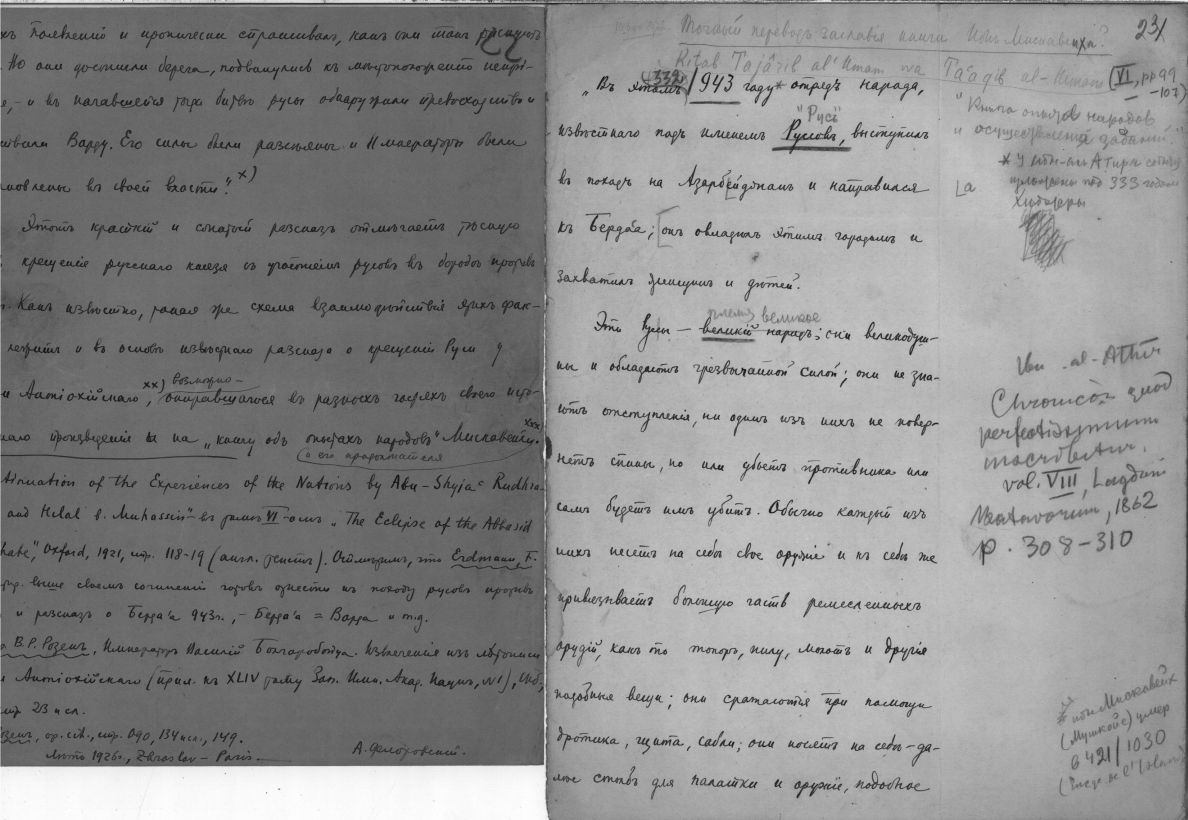 хъ появленiй и иронически спрашивалъ, какъ они такъ рискуютъ
Но они достигли берега, подвинулись къ мѣстоположенiю непрi-
и въ начавшейся тогда битвѣ русы обнаружили превосходство и
Варду. Его силы были разсѣяны и Императоры были
новлены въ своей власти". x)
Этотъ краткiй и сжатый разсказъ отмѣчаетъ тѣсную
крещенiе русскаго князя съ участiемъ русовъ въ борьбѣ противъ
Какъ извѣстно, такая же схема взаимодѣйствiя этихъ фак-
лежитъ и въ основѣ извѣстнаго разсказа о крещенiи Руси у
и Антiохiйскаго, xx) возможно
опиравшагося въ разныхъ частяхъ своего исто-
наго произведенiя и на „книгу объ опытахъ народовъ" Мискавейхи. xxx)
и его продолжателя
of the Experiences of the Nations by Abu-Shyja Rudhra-
and Hilal b. Muhassin" въ томѣ VI-омъ „The Eclipse of the Abbasid
Oxford, 1921, стр. 118-19 (англ. текстъ). Отмѣтимъ, что Erdmann, F.
выше своемъ сочиненiи готовъ отнести къ походу русовъ противъ
и разсказъ о Берда'а 943г., – Берда'а = Варда и т.д.
В.Р. Розенъ, Императоръ Василiй Болгаробойца. Извлеченiя изъ лѣтописи
Антiохiйскаго (прил. къ XLIV тому Зап. Имп. Акад. Наукъ, №1), Спб,
стр 23 исл.
op. cit., стр. 090, 134 исл., 149.
Лѣто 1926г., Zbraslav – Paris.
А. Флоровскiй.
23/
Точный переводъ заглавiя книги Ибнъ Мискавейхи?
Kitab Tajârib al' Umam wa Ta'âqib al-Umam (VI, pp 99
-107)
„Въ этомъ 332/943 году* отрядъ народа,
"Книга опытовъ народовъ
и осуществленiя заданiй."
"Русь"
извѣстнаго подъ именемъ Руссовъ, выступилъ
* У Ибн-ал Атира событiя
изложены под 333 годом
Хиджры
въ походъ на Азарбейджанъ и направился
[а
къ Берда'а; онъ овладѣлъ этимъ городомъ и
захватилъ женщинъ и дѣтей.
племя великое
Эти Руссы — великiй народъ; они великодуш-
ны и обладаютъ чрезвычайной силой; они не зна-
ютъ отступленiя, ни одинъ изъ нихъ не повер-
нетъ спины, но или убьетъ противника или
самъ будетъ имъ убитъ. Обычно каждый изъ
нихъ несетъ на себѣ свое оружiе и къ себѣ же
привязываетъ большую часть ремесленныхъ
орудiй, какъ то топоръ, пилу, молотъ и другiя
подобныя вещи; они сражаются при помощи
дротика, щита, сабли; они носятъ на себѣ да-
лѣе столбъ для палатки и оружiе, подобное
Ibn-al-Athir
Chronicon quod
perfectissimum
inscribitur.
vol. VIII, Lugduni
Batavorum, 1862
p. 308–310
* ибн Мискавейх
умер
в 421/1030